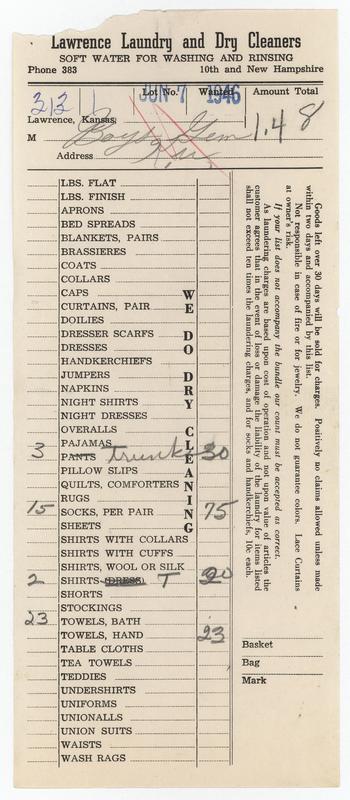 Lawrence Laundry and Dry Cleaners
SOFT WATER FOR WASHING AND RINSING
Phone 383 10th and New Hampshire
Lot No. Wanted Amount Total
313 JUN 7 1946 1.48
Lawrence, Kansas,
M Boys Gem
Address K.U.
LBS. FLAT
LBS. FINISH
APRONS
BED SPREADS
BLANKETS, PAIRS
BRASSIERES
COATS
COLLARS
CAPS
CURTAINS, PAIR
DOILIES
DRESSER SCARFS
DRESSES
HANDKERCHIEFS
JUMPERS
NAPKINS
NIGHT SHIRTS
NIGHT DRESSES
OVERALLS
PAJAMAS
3 PANTS trunks 30
PILLOW SLIPS
QUILTS, COMFORTERS
RUGS
15 SOCKS, PER PAIR 75
SHEETS
SHIRTS WITH COLLARS
SHIRTS WITH CUFFS
SHIRTS, WOOL OR SILK
2 SHIRTS (DRESS) T 20
SHORTS
STOCKINGS
23 TOWELS, BATH
TOWELS, HAND 23
TABLE CLOTHS
TEA TOWELS
TEDDIES
UNDERSHIRTS
UNIFORMS
UNIONALLS
UNION SUITS
WAISTS
WASH RAGS
WE DO DRY CLEANING
Goods left over 30 days will be sold for charges. Positively no claims allowed unless made
within two days and accompanied by this list.
Not responsible in case of fire or for jewelry. We do not guarantee colors. Lace Curtains
at owner's risk.
If your list does not accompany the bundle our count must be accepted as correct.
As laundering charges are based upon cost of operation and not upon value of articles the
customer agrees that in the event of loss or damage the liability of the laundry for items listed
shall not exceed ten times the laundering charges, and for socks and handkerchiefs, 10c each.
Basket
Bag
Mark